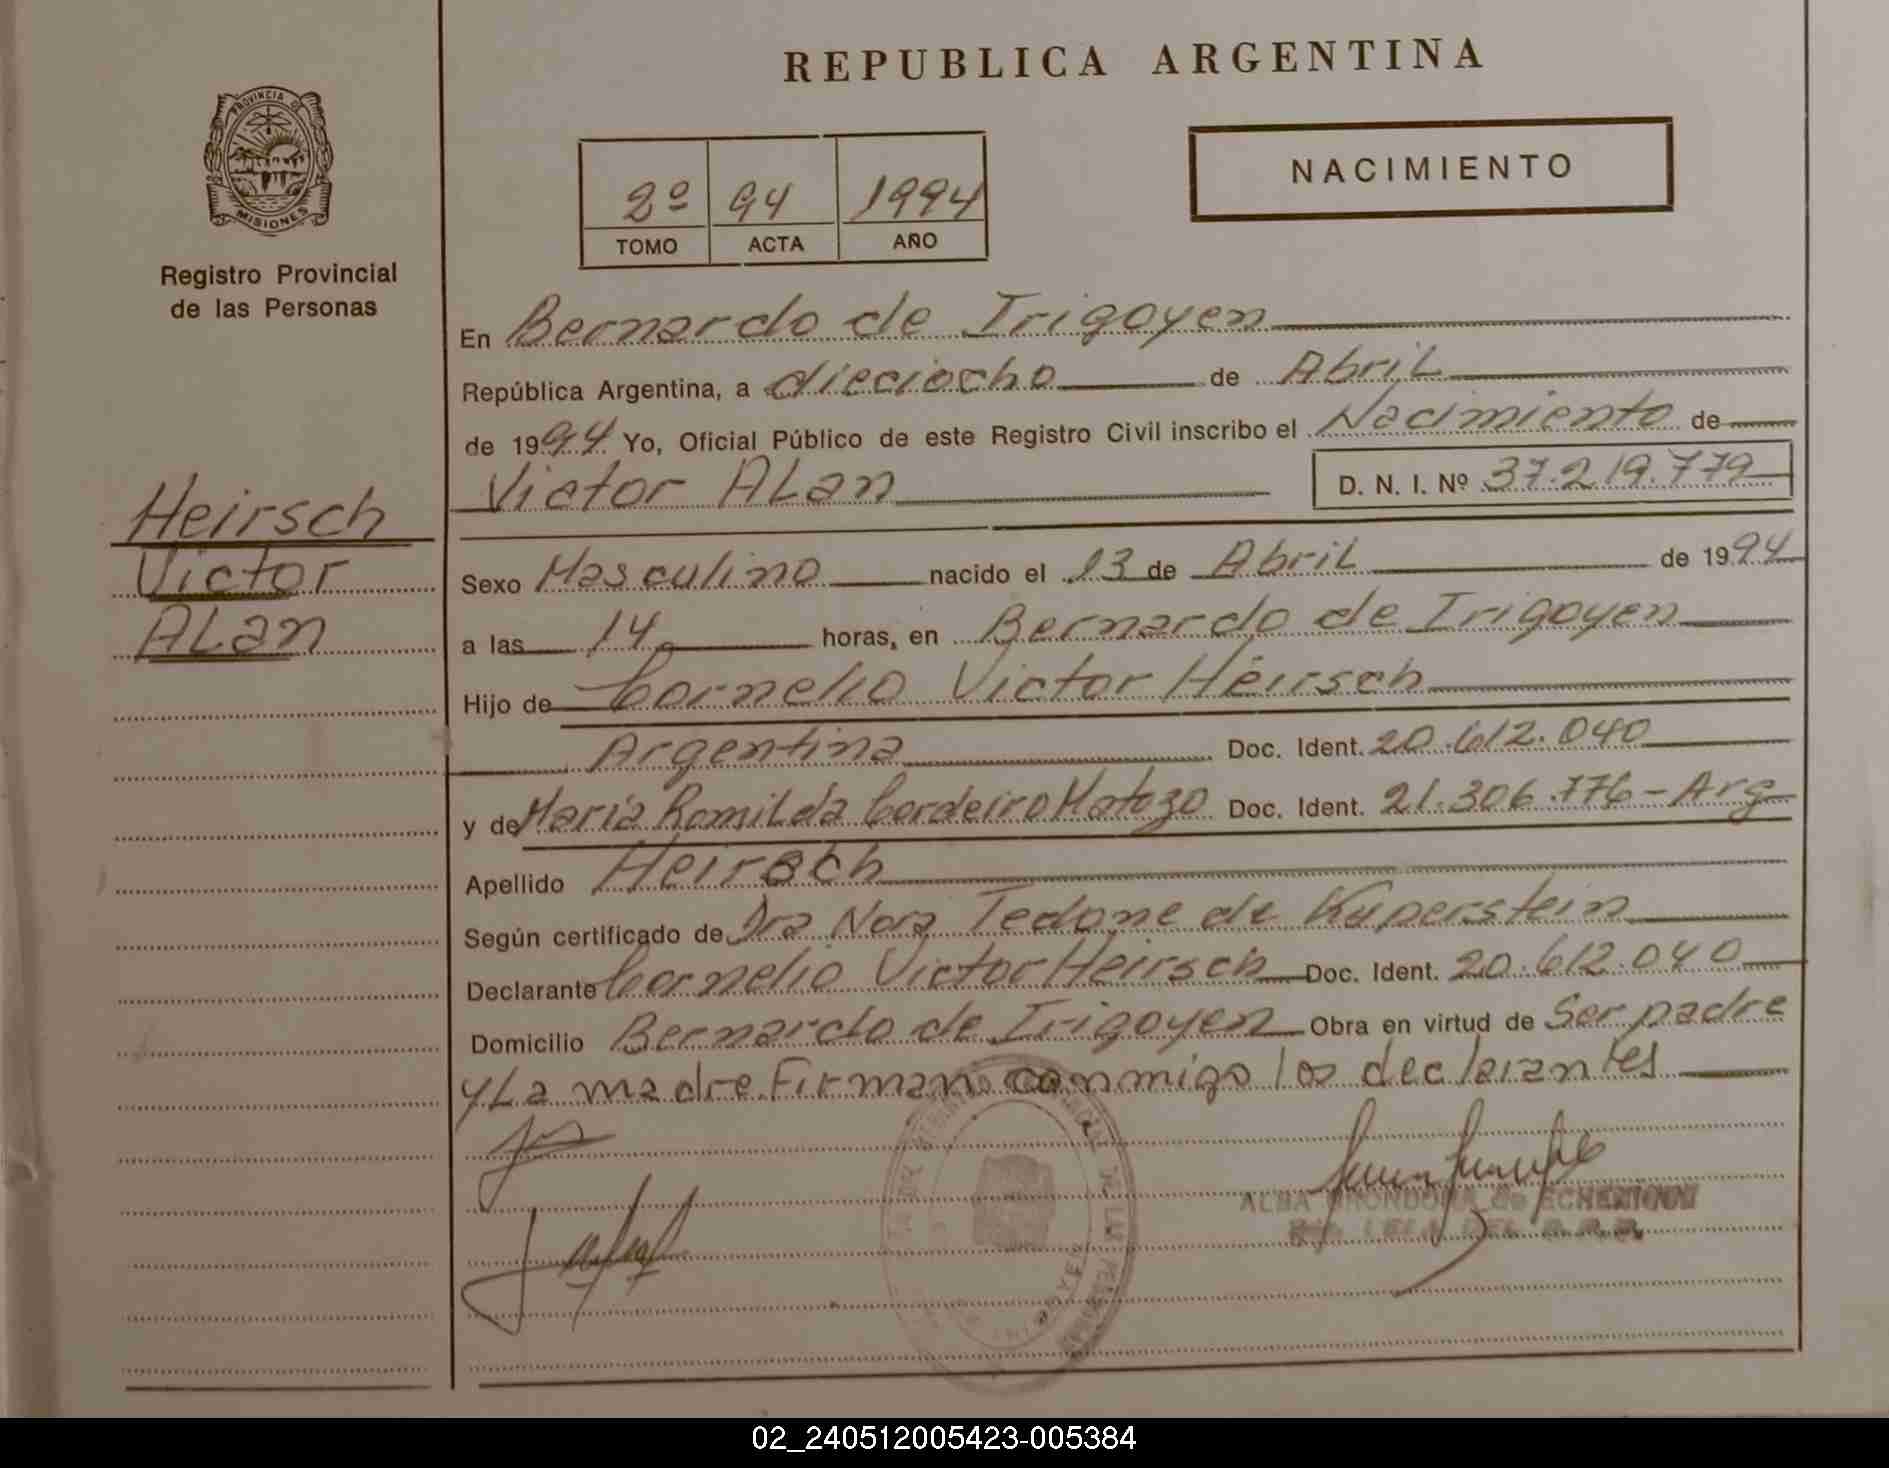 REPUBLICA ARGENTINA
PROVINCIA DE
MISIONES
Registro Provincial
de las Personas
NACIMIENTO
2º 94 1994
TOMO ACTA AÑO
En Bernardo de Irigoyen
República Argentina, a dieciocho de Abril
de 1994 Yo, Oficial Público de este Registro Civil inscribo el Nacimiento de
Victor ALan D. N. I. Nº 37.219.779
Heirsch
Victor
ALan
Sexo Masculino nacido el 13 de Abril de 1994
a las 14 horas, en Bernardo de Irigoyen
Hijo de Cornelio Victor Heirsch
Argentina Doc. Ident. 20.612.040
y de María Romilda Cordeiro Matozo Doc. Ident. 21.306.776 - Arg
Apellido Heirsch
Según certificado de Dra Nora Tedone de Kuperstein
Declarante Cornelio Victor Heirsch Doc. Ident. 20.612.040
Domicilio Bernardo de Irigoyen Obra en virtud de Ser padre
y La madre. Firman conmigo los declarantes
ALBA de ECHENIQUE
02_240512005423-005384